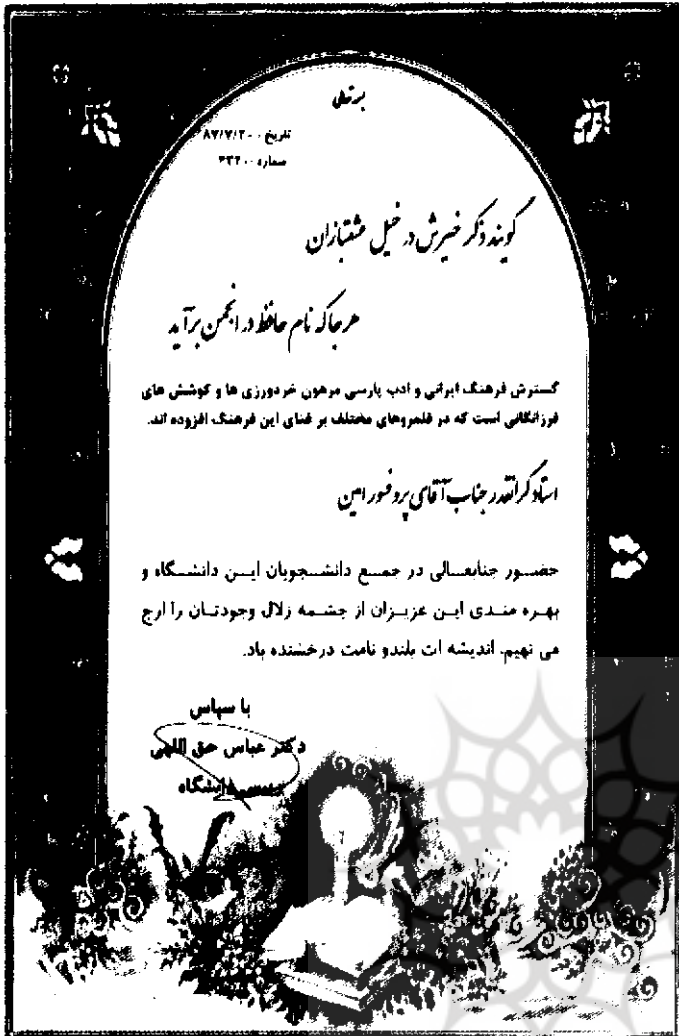 بسمه تعالی
تاریخ ۸۷/۷/۲۰۰۰
شماره ۴۳۲۰۰
گویند ذکر خیرش در خیل عشقبازان
هر جا که نام حافظ در انجمن برآید
گسترش فرهنگ ایرانی و ادب پارسی مرهون خردورزی ها و کوشش های
فرزانگانی است که در قلمروهای مختلف بر غنای این فرهنگ افزوده اند.
استاد گرانقدر جناب آقای پروفسور امین
حضور جنابعالی در جمع دانشجویان این دانشگاه و
بهره مندی این عزیزان از چشمه زلال وجودتان را ارج
می نهیم. اندیشه ات بلندو نامت درخشنده باد.
با سپاس
دکتر عباس حق اللهی
دانشگاه